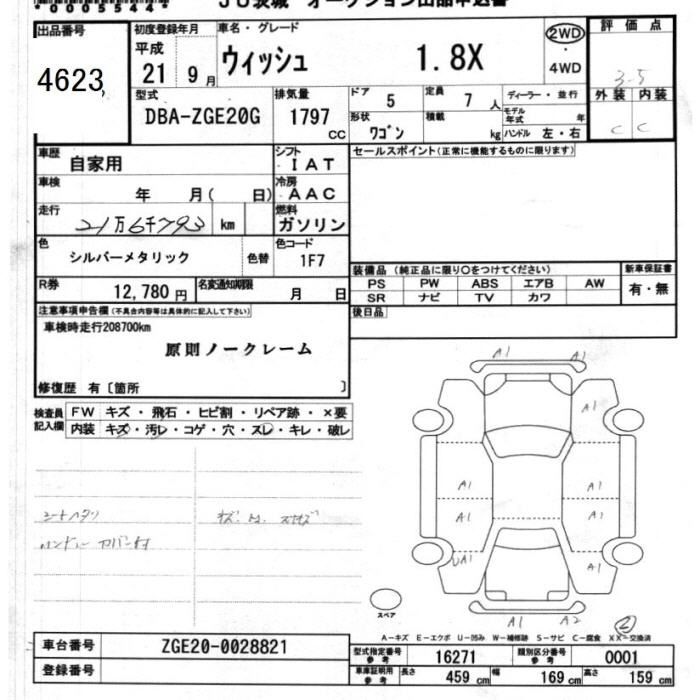 00055444
JU茨城 オークション出品申込書
出品番号
4623
初度登録年月
平成
21 9月
車名・グレード
ウィッシュ 1.8X
2WD
・
4WD
評価点
3.5
外装 内装
C C
型式
DBA-ZGE20G
排気量
1797 CC
ドア 5
定員 7 人
形状 ワゴン
積載 kg
ディーラー・並行
モデル年式 年
ハンドル 左・右
車歴 自家用
シフト IAT
セールスポイント(正常に機能するものに限ります)
車検 年 月( 日)
冷房 AAC
走行 21万6千793 km
燃料 ガソリン
色 シルバーメタリック 色替
色コード 1F7
R券 12,780円
名変通知期限 月 日
装備品 (純正品に限り○をつけてください)
PS PW ABS エアB AW
SR ナビ TV カワ
新車保証書
有・無
後日品
注意事項申告欄(不具合内容等は具体的に記入して下さい)
車検時走行208700km
原則ノークレーム
修復歴 有〔箇所 〕
検査員記入欄
FW キズ・飛石・ヒビ割・リペア跡・×要
内装 キズ・汚レ・コゲ・穴・スレ・キレ・破レ
シートヘタリ
ハンドルカバー付
A1 A1
A1
A1 A1
A1 A1
UA1 A1
A1 A2
2
スペア
A-キズ E-エクボ U-凹み W-補修跡 S-サビ C-腐食 XX-交換済
車台番号 ZGE20-0028821
登録番号
型式指定番号 参考 16271
類別区分番号 参考 0001
車庫証明用 参考 長さ 459 cm 幅 169 cm 高さ 159 cm